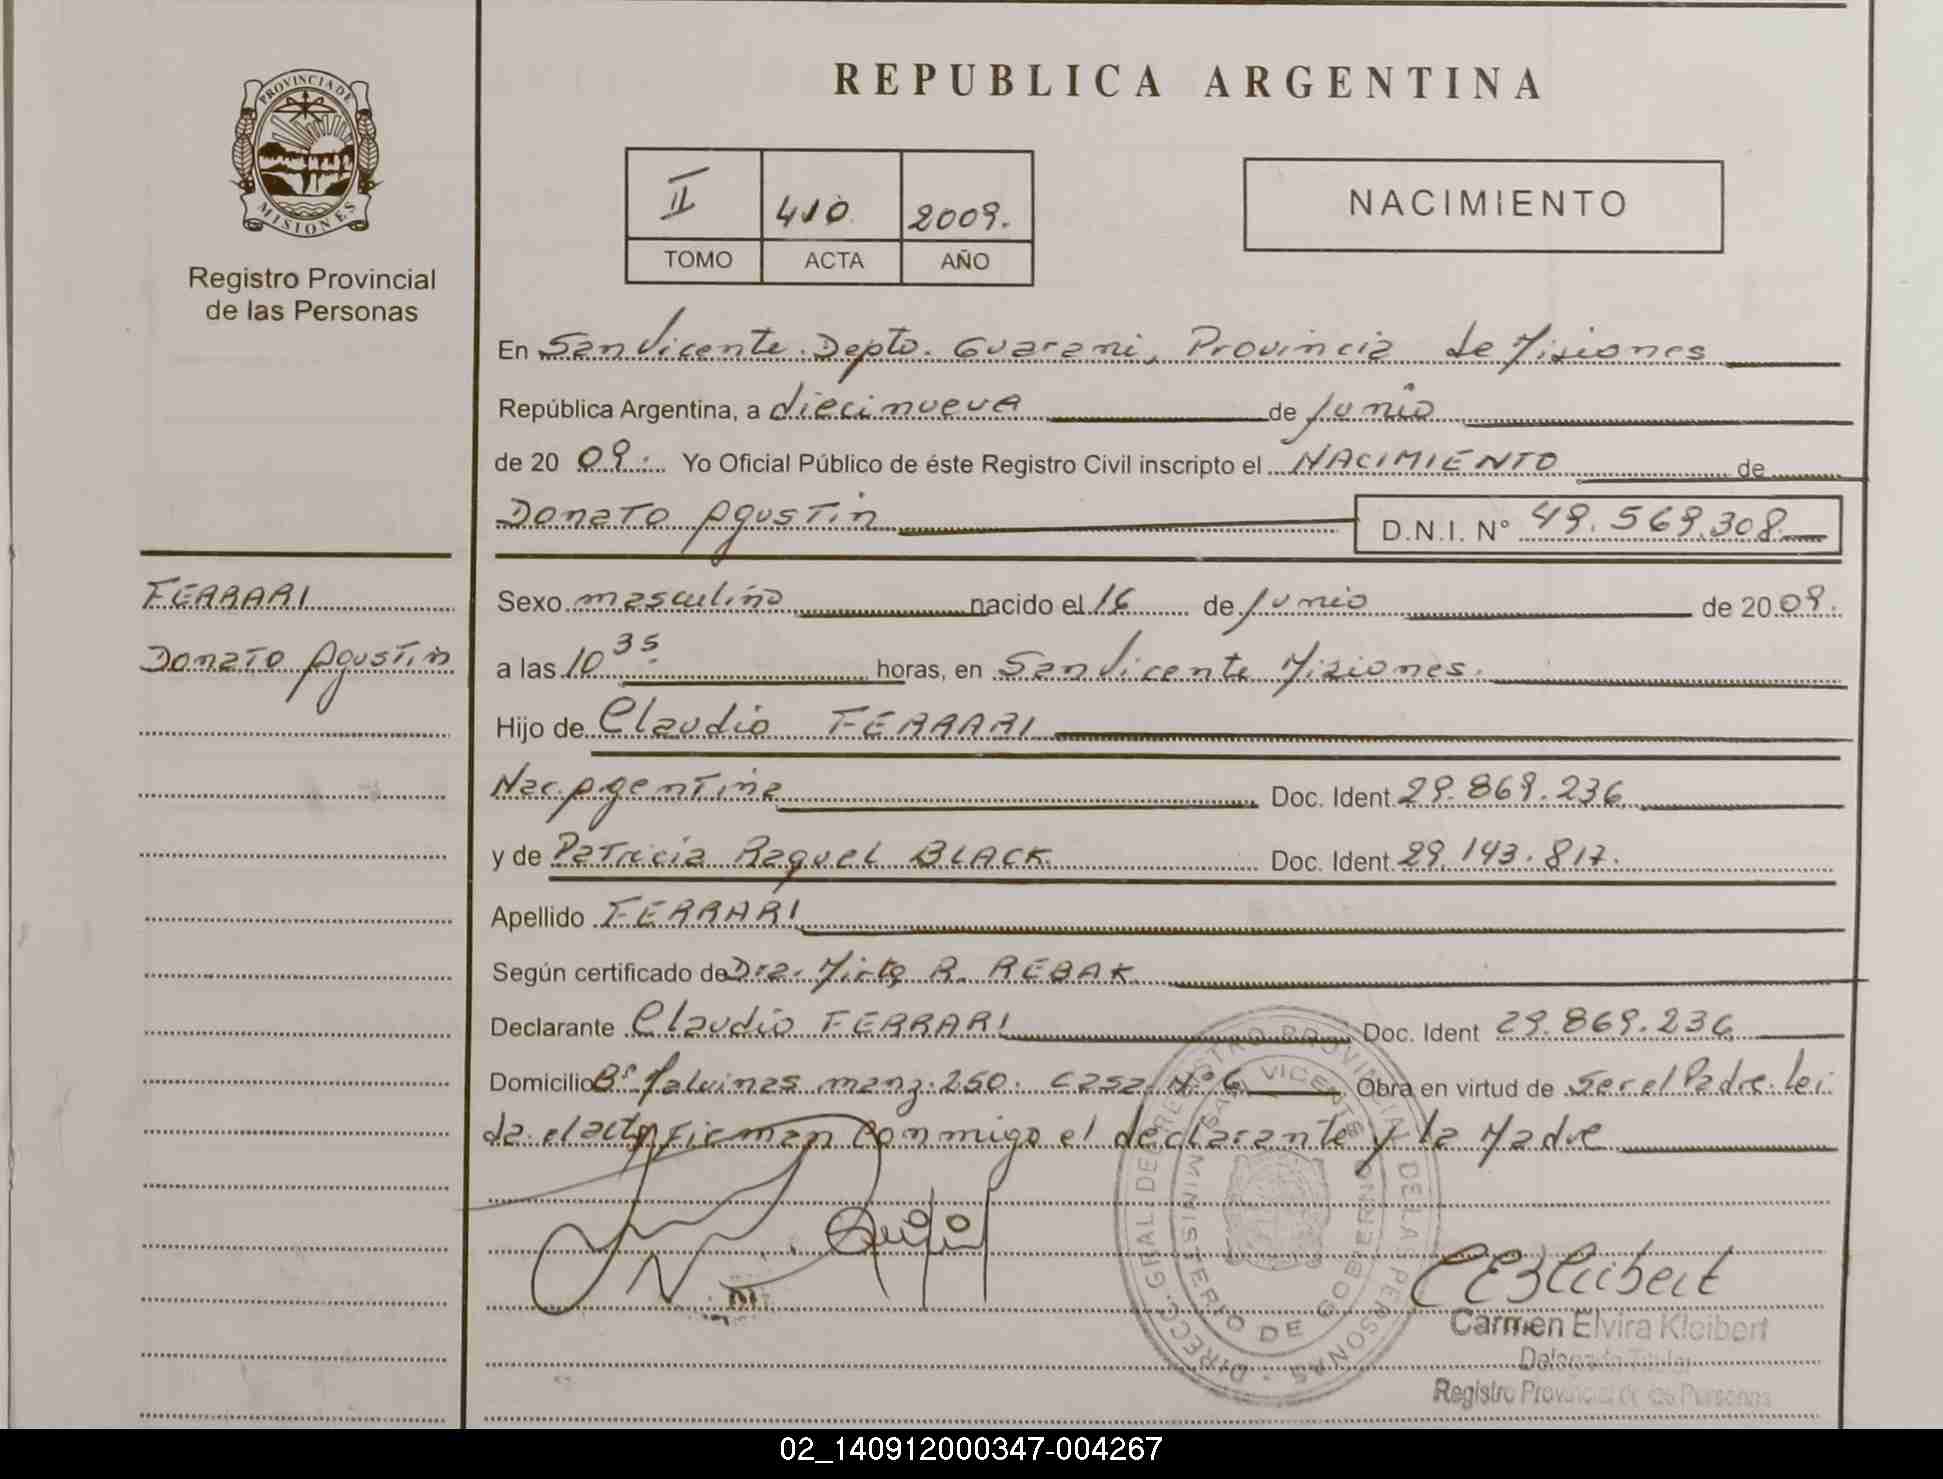 PROVINCIA DE
MISIONES
Registro Provincial
de las Personas
FERRARI
Donato Agustin
REPUBLICA ARGENTINA
II 410 2009.
TOMO ACTA AÑO
NACIMIENTO
En San Vicente. Depto. Guarani, Provincia de Misiones
República Argentina, a diecinueve de Junio
de 20 09. Yo Oficial Público de éste Registro Civil inscripto el NACIMIENTO de
Donato Agustin D.N.I. N° 49.569.308
Sexo masculino nacido el 16 de Junio de 20 09.
a las 10 35 horas, en San Vicente Misiones.
Hijo de Claudio FERRARI
Nac. Agentina Doc. Ident. 29.869.236
y de Patricia Raquel BLACK Doc. Ident. 29.143.817.
Apellido FERRARI
Según certificado de Dra. Mirta R. REBAK
Declarante Claudio FERRARI Doc. Ident 29.869.236
Domicilio B° Malvinas manz. 250. Casa N° 6 Obra en virtud de Ser el Padre. Lei
da el acta firman conmigo el declarante y la Madre
DIRECC. GRAL. DE REGISTRO PROVINCIAL DE LA PERSONAS
SAN VICENTE
MINISTERIO DE GOBIERNO
Carmen Elvira Kleibert
Delegada Titular
Registro Provincial de las Personas
02_140912000347-004267